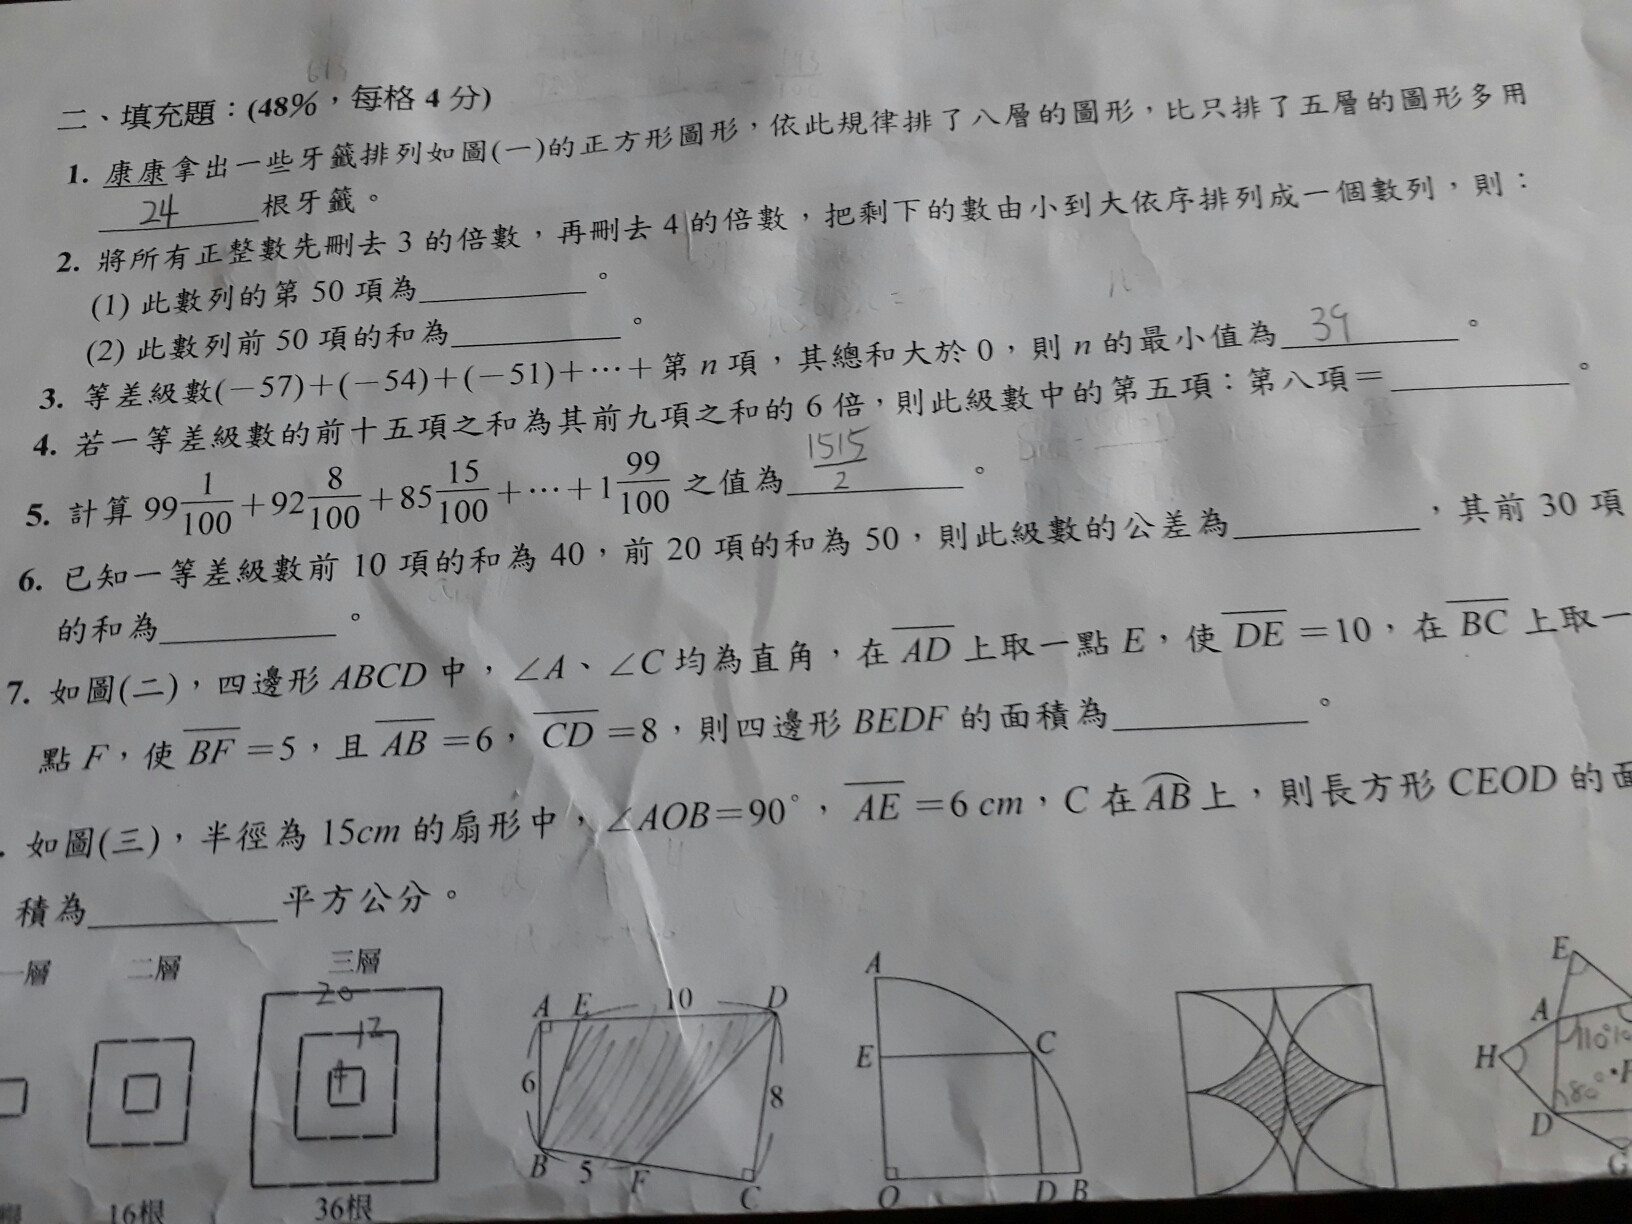 二、填充題：(48%，每格 4 分)
1. 康康拿出一些牙籤排列如圖(一)的正方形圖形，依此規律排了八層的圖形，比只排了五層的圖形多用
24 根牙籤。
2. 將所有正整數先刪去 3 的倍數，再刪去 4 的倍數，把剩下的數由小到大依序排列成一個數列，則：
(1) 此數列的第 50 項為________。
(2) 此數列前 50 項的和為________。
3. 等差級數(－57)＋(－54)＋(－51)＋⋯＋第 n 項，其總和大於 0，則 n 的最小值為 39 。
4. 若一等差級數的前十五項之和為其前九項之和的 6 倍，則此級數中的第五項：第八項＝________。
5. 計算 99 1/100 ＋92 8/100 ＋85 15/100 ＋⋯＋1 99/100 之值為 1515/2 。
6. 已知一等差級數前 10 項的和為 40，前 20 項的和為 50，則此級數的公差為________，其前 30 項
的和為________。
7. 如圖(二)，四邊形 ABCD 中，∠A、∠C 均為直角，在 AD 上取一點 E，使 DE ＝10，在 BC 上取一
點 F，使 BF ＝5，且 AB ＝6，CD ＝8，則四邊形 BEDF 的面積為________。
. 如圖(三)，半徑為 15cm 的扇形中，∠AOB＝90°，AE ＝6 cm，C 在 AB 上，則長方形 CEOD 的面
積為________平方公分。
一層 二層 三層
20
12
4
16根 36根
A E 10 D
6 8
B 5 F C
A
E C
O D B
E
A
H 110°
80°
D
G